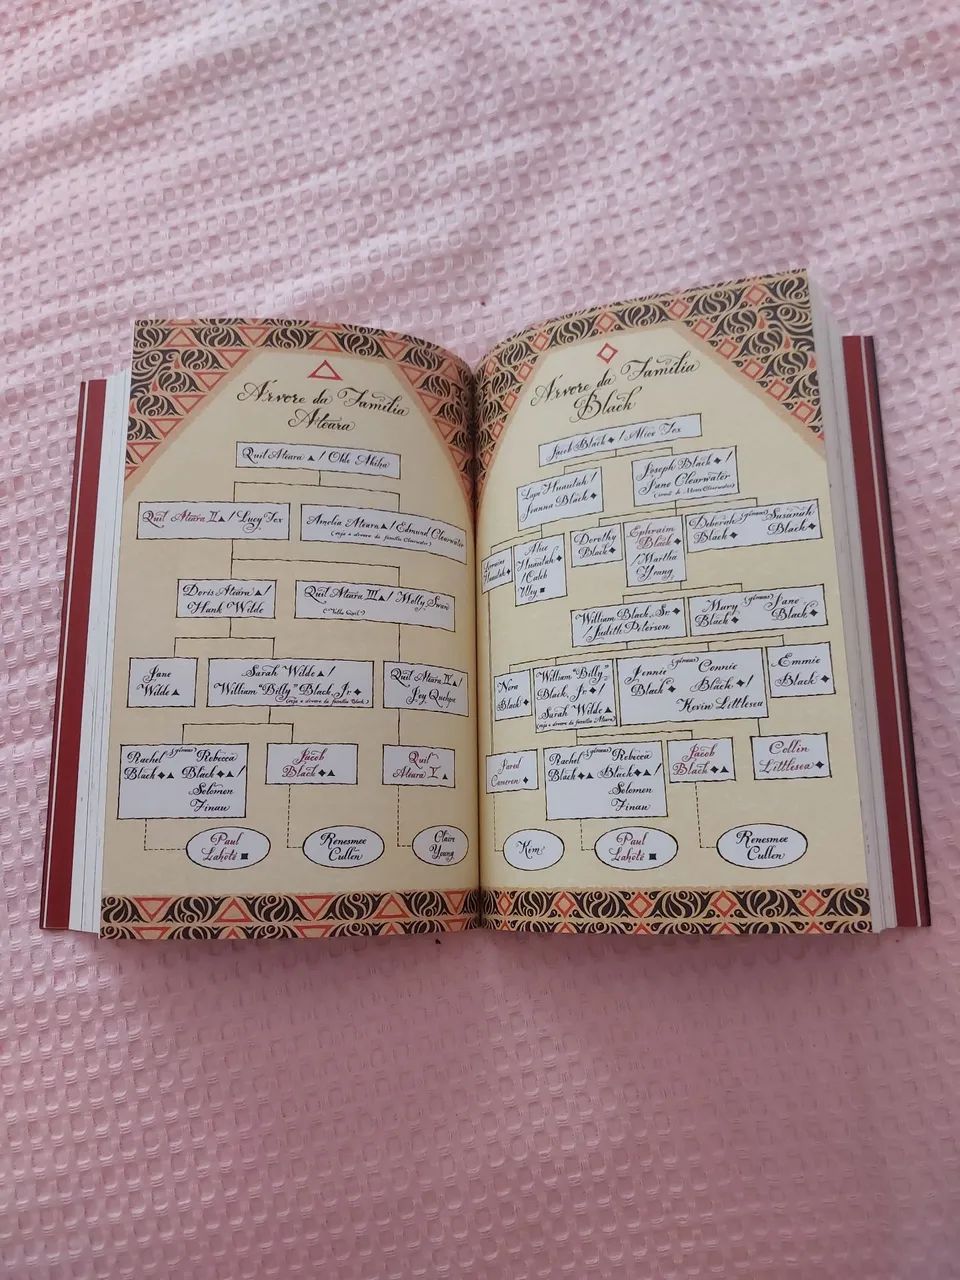 Árvore da Família
Ateara
Quil Ateara ▲ / Ohde Akiha
Quil Ateara II ▲ / Lucy Fox
Amelia Ateara ▲ / Edmund Clearwater
(veja a árvore da família Clearwater)
Doris Ateara ▲ /
Hank Wilde
Quil Ateara III ▲ / Molly Swan
("Velho Quil")
Jane
Wilde ▲
Sarah Wilde ▲ /
William "Billy" Black, Jr. ◆
(veja a árvore da família Black)
Quil Ateara IV ▲ /
Joy
Rachel (gêmeas) Rebecca
Black ◆▲ Black ◆▲ /
Solomon
Finau
Jacob
Black ◆▲
Quil
Ateara V ▲
Paul
Lahote ■
Renesmee
Cullen
Claire
Young
Árvore da Família
Black
Jacob Black ◆ / Alice Fox
Lupe Huautah /
Joanna Black ◆
Joseph Black ◆ /
Jane Clearwater
Huautah ◆
Alice
Huautah ◆
/ Caleb
Uley ■
Dorothy
Black ◆
Ephraim
Black ◆
/ Martha
Young
Deborah (gêmeas) Susanah
Black ◆ Black ◆
William Black, Sr. ◆
/ Judith Peterson
Mary (gêmeas) Jane
Black ◆ Black ◆
Nora
Black ◆
William "Billy"
Black, Jr. ◆ /
Sarah Wilde ▲
(veja a árvore da família Ateara)
Jennie (gêmeas) Connie
Black ◆ Black ◆ /
Kevin Littlesea
Emmie
Black ◆
Jared
Cameron ◆
Rachel (gêmeas) Rebecca
Black ◆▲ Black ◆▲ /
Solomon
Finau
Jacob
Black ◆▲
Collin
Littlesea ◆
Kim
Paul
Lahote ■
Renesmee
Cullen